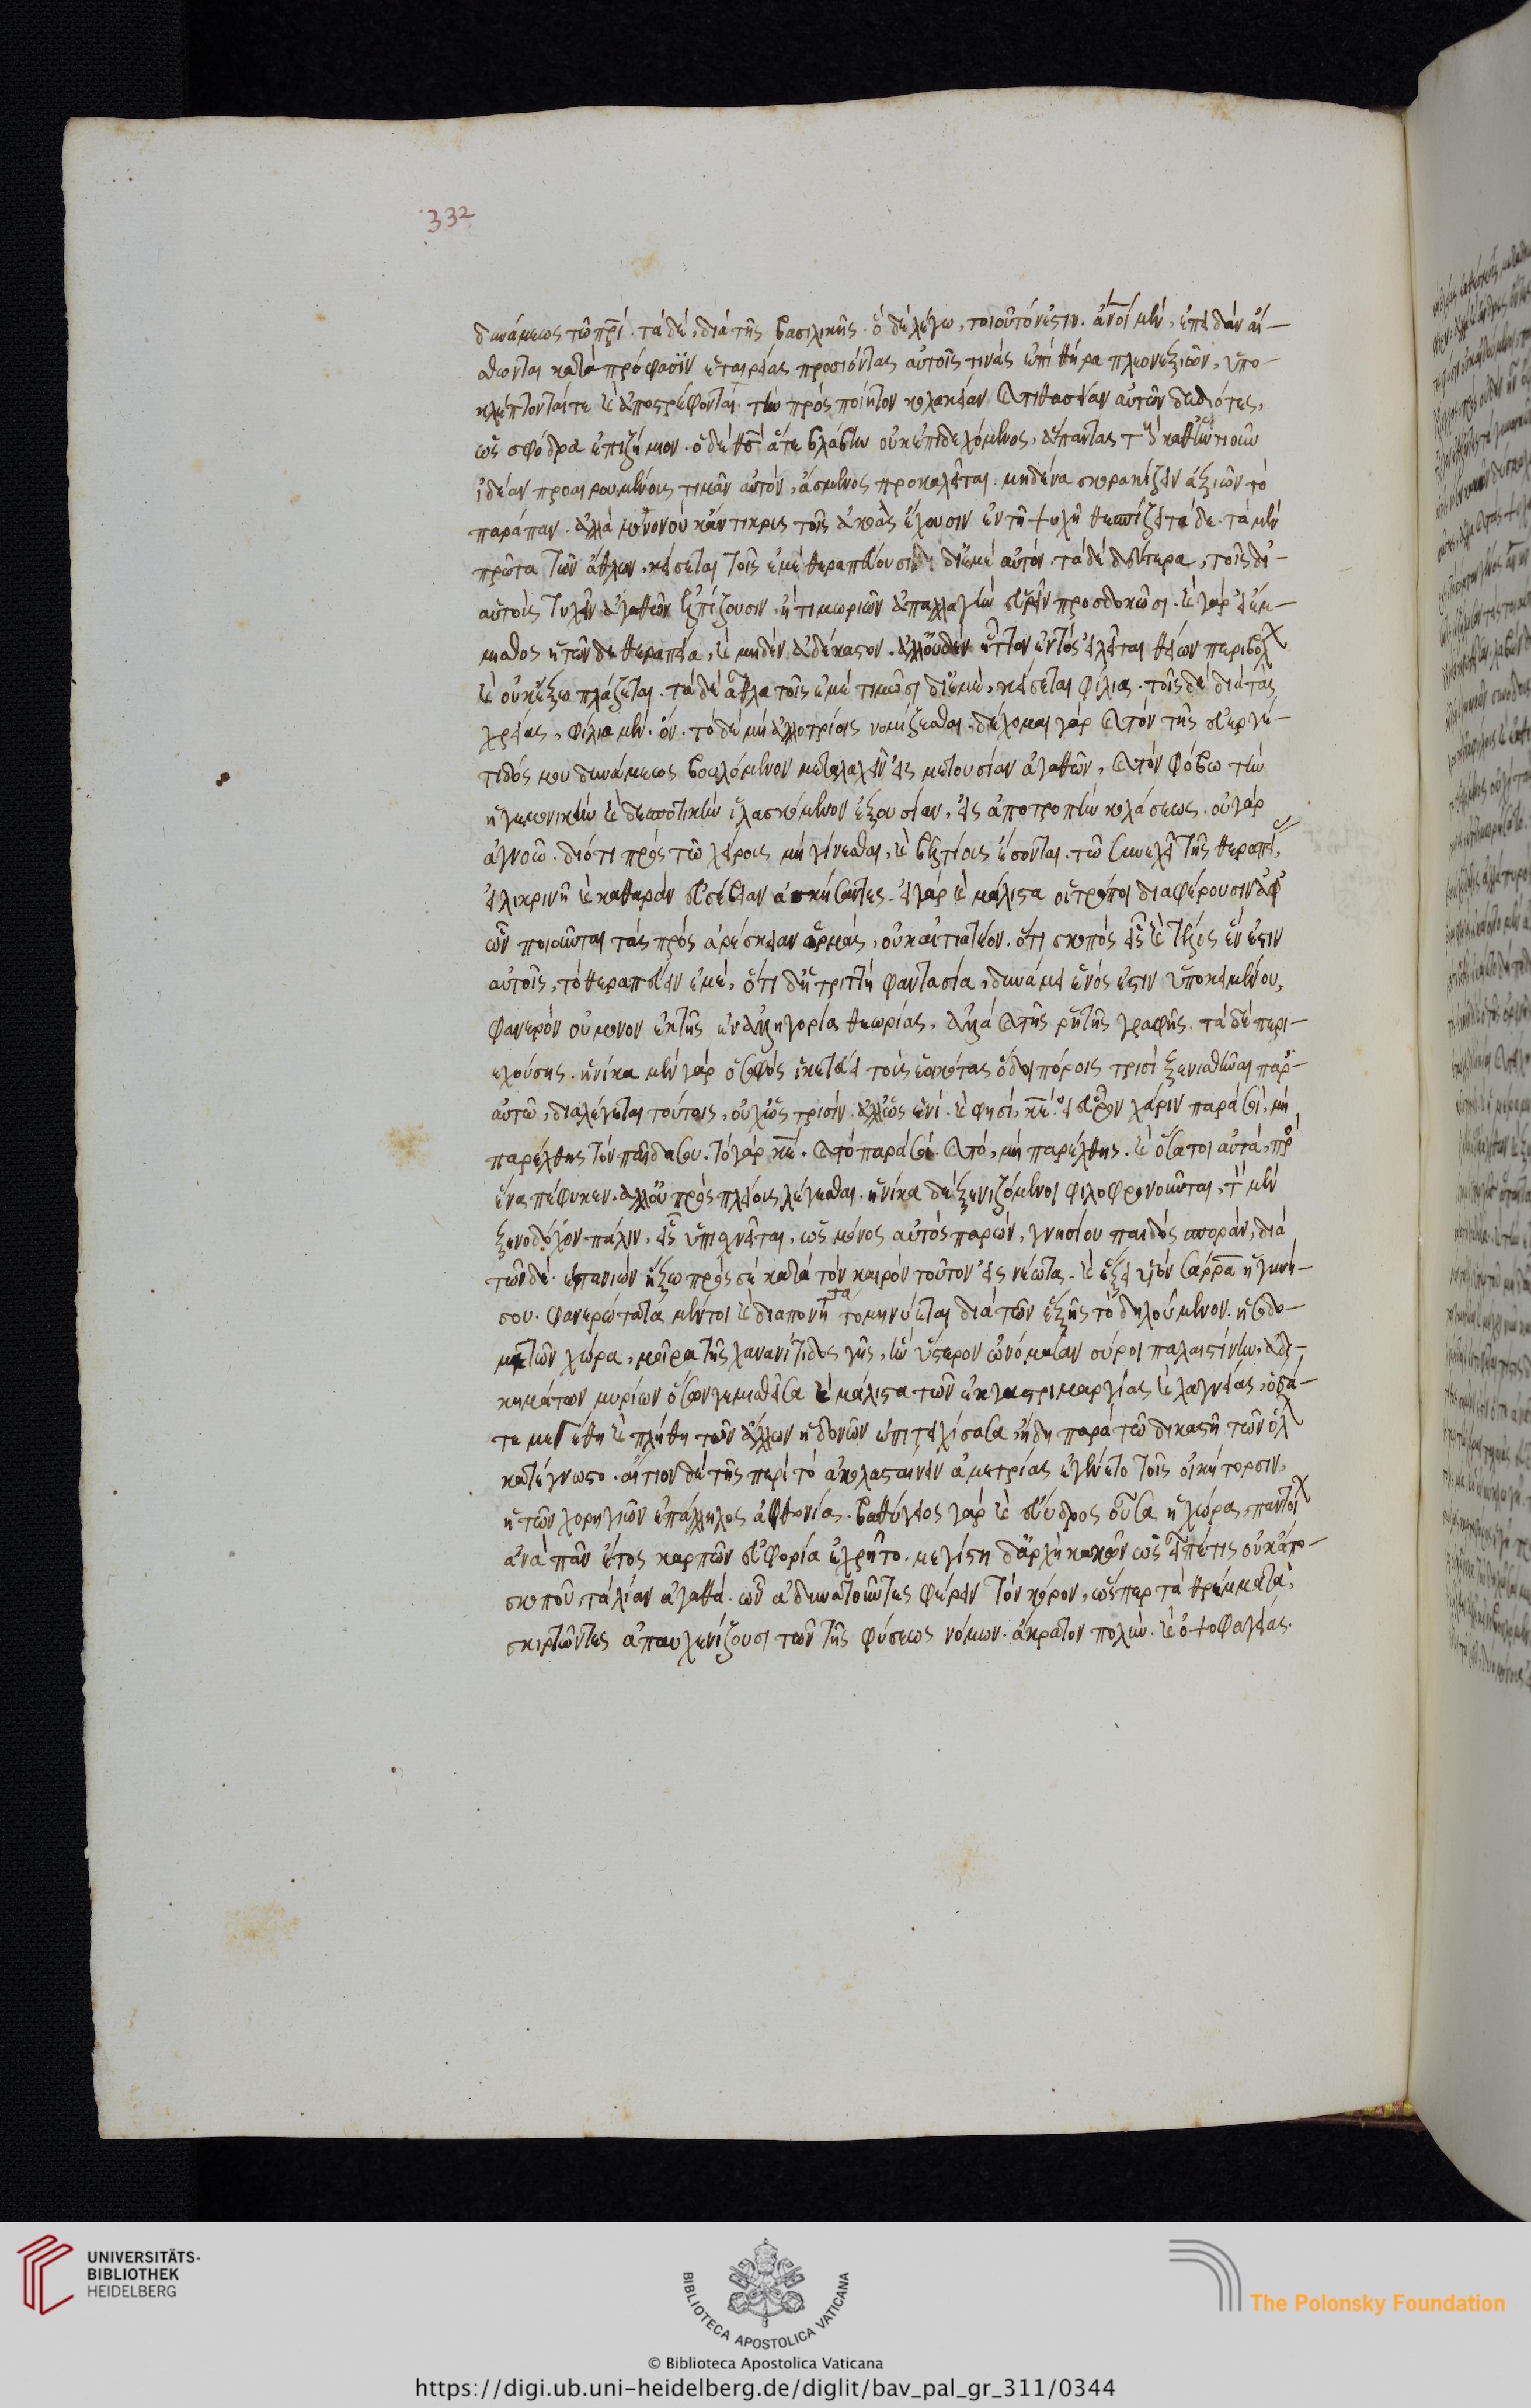 332
δυνάμεως τῶ πρί. τὰ δὲ, διὰ τῆς βασιλικῆς. ὁ δὲ λέγω, τοιοῦτόν ἐστιν. ἄνοι μὲν, ἐπειδὰν αἴ-
σθωνται κατὰ πρόφασιν ἑταιρείας προσιόντας αὐτοῖς τινὰς ἐπὶ θήρα πλεονεξιῶν, ὑπο-
κλέπτονταί τε καὶ ἀποστρέφονται τὴν πρὸς ποίητον κολακείαν καὶ τιθασείαν αὐτῶν δεδιότες,
ὡς σφόδρα ἐπιζήμιον. ὁ δὲ θς ἅτε βλάβην οὐκ ἐπιδεχόμενος, ἅπαντας τοὺς καθ' ἡντινοῦν
ἰδέαν προαιρουμένους τιμᾶν αὐτὸν, ἄσμενος προκαλεῖται. μηδένα σκορακίζειν ἀξιῶν τὸ
παράπαν. ἀλλὰ μονονοὺ κἄντικρις τοῖς ἀκοὰς ἔχουσιν ἐν τῆ ψυχῆ θεσπίζει τάδε. τὰ μὲν
πρῶτα τῶν ἄθλων, κείσεται τοῖς ἐμὲ θεραπεύουσι δι' ἐμὲ αὐτόν. τὰ δὲ δεύτερα, τοῖς δι'
αὑτοὺς τυχεῖν ἀγαθῶν ἐλπίζουσιν, ἢ τιμωριῶν ἀπαλλαγὴν εὑρεῖν προσδοκῶσι. καὶ γὰρ εἰ ἔμ-
μισθος ἡ τῶνδε θεραπεία, καὶ μηδὲν ἀδέκαστον. ἀλλ' οὐδὲν ἧττον ἐντὸς εἰλεῖται θείων περιβόλ
καὶ οὐκ ἔξω πλάζεται. τὰ δὲ ἆθλα τοῖς ἐμὲ τιμῶσι δι' ἐμὲ, κείσεται φίλια. τοῖς δὲ διὰ τὰς
χρείας, φίλια μὲν. οὔ. τὸ δὲ μὴ ἀλλοτρίοις νομίζεσθαι. δέχομαι γὰρ καὶ τὸν τῆς εὐεργέ-
τιδός μου δυνάμεως βουλόμενον μεταλαχεῖν εἰς μετουσίαν ἀγαθῶν, καὶ τὸν φόβω τὴν
ἡγεμονικὴν καὶ δεσποτικὴν ἱλασκόμενον ἐξουσίαν, εἰς ἀποτροπὴν κολάσεως. οὐ γὰρ
ἀγνοῶ. διότι πρὸς τῶ χείροις μὴ γίνεσθαι, καὶ βελτίους ἔσονται. τῶ συνεχεῖ τῆς θεραπεί,
εἰλικρινῆ καὶ καθαρὰν εὐσέβειαν ἀσκήσαντες. εἰ γὰρ καὶ μάλιστα οἱ τρόποι διαφέρουσιν ἀφ'
ὧν ποιοῦνται τὰς πρὸς ἀρέσκειαν ὁρμὰς, οὐκ αἰτιατέον. ὅτι σκοπὸς εἷς καὶ τέλος ἕν ἐστιν
αὐτοῖς, τὸ θεραπεύειν ἐμέ. ὅτι δ' ἡ τριττὴ φαντασία, δυνάμει ἑνός ἐστιν ὑποκειμένου,
φανερὸν οὐ μόνον ἐκ τῆς ἐν ἀλληγορία θεωρίας, ἀλλὰ καὶ τῆς ῥητῆς γραφῆς. τὰ δὲ περι-
εχούσης. ἡνίκα μὲν γὰρ ὁ σοφὸς ἱκετεύει τοὺς ἐοικότας ὁδοιπόροις τρισὶ ξενισθῆναι παρ'
αὐτῶ, διαλέγεται τούτοις, οὐχ ὡς τρισίν. ἀλλ' ὡς ἑνί. καὶ φησί, κε. εἰ εὗρον χάριν παρά σοί, μὴ
παρέλθης τὸν παῖδα σου. τὸ γὰρ κε. καὶ τὸ παρά σοί. καὶ τό, μὴ παρέλθης. καὶ ὅσα τοι αὐτά, πρὸς
ἕνα πέφυκεν. ἀλλ' οὐ πρὸς πλείους λέγεσθαι. ἡνίκα δὲ ξενιζόμενοι φιλοφρονοῦνται, τὸν μὲν
ξενοδόχον πάλιν, εἷς ὑπισχνεῖται, ὡς μόνος αὐτὸς παρών, γνησίου παιδὸς σποράν, διὰ
τῶνδε. ἐπανιὼν ἥξω πρὸς σὲ κατὰ τὸν καιρὸν τοῦτον εἰς νέωτα. καὶ ἕξει υἱὸν σάρρα ἡ γυνή-
σου. φανερώτατα μέντοι καὶ διαπονητότα μηνύεται διὰ τῶν ἑξῆς τὸ δηλούμενον. ἡ σοδο-
μιτῶν χώρα, μοῖρα τῆς χανανίτιδος γῆς, ἣν ὕστερον ὠνόμασαν σύροι παλαιστίνην, ἀδι-
κημάτων μυρίων ὅσων γεμισθεῖσα καὶ μάλιστα τῶν ἐκ γαστριμαργίας καὶ λαγνείας, ὅσά-
τε μεγέθη καὶ πλήθη τῶν ἄλλων ἡδονῶν ἐπιτειχίσασα, ἤδη παρὰ τῶ δικαστῆ τῶν ὅλ
κατέγνωστο. αἴτιον δὲ τῆς περὶ τὸ ἀκολασταίνειν ἀμετρίας ἐγένετο τοῖς οἰκήτορσιν,
ἡ τῶν χορηγιῶν ἐπάλληλος ἀφθονία. βαθύγειος γὰρ καὶ εὔυδρος οὖσα ἡ χώρα, παντοί
ἀνὰ πᾶν ἔτος καρπῶν εὐφορία ἐχρῆτο. μεγίστη δ' ἀρχὴ κακῶν ὡς εἶπέ τις οὐκ ἀπο-
σκοποῦ, τὰ λίαν ἀγαθά. ὧν ἀδυνατοῦντες φέρειν τὸν κόρον, ὥσπερ τὰ θρέμματα,
σκιρτῶντες ἀπαυχενίζουσι τῶν τῆς φύσεως νόμων. ἄκρατον πολὺν. καὶ ὀψοφαγίας.
UNIVERSITÄTS-
BIBLIOTHEK
HEIDELBERG
BIBLIOTECA APOSTOLICA VATICANA
The Polonsky Foundation
© Biblioteca Apostolica Vaticana
https://digi.ub.uni-heidelberg.de/diglit/bav_pal_gr_311/0344